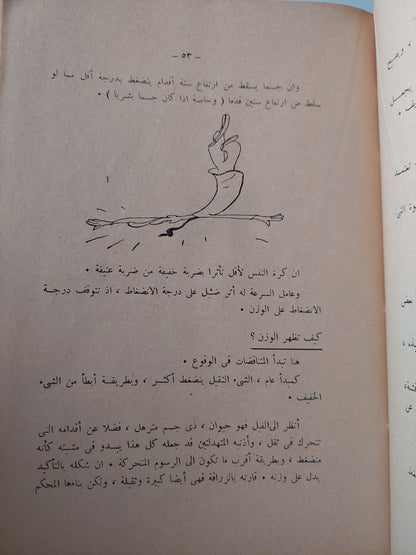 - ٥٣ -
وان جسما يسقط من ارتفاع ستة أقدام ينضغط بدرجة أقل مما لو
سقط من ارتفاع ستين قدما ( وخاصة اذا كان جسما بشريا ) .
ان كرة التنس لأقل تأثرا بضربة خفيفة من ضربة عنيفة .
وعامل السرعة له أثر ضئيل على درجة الانضغاط ، اذ تتوقف درجة
الانضغاط على الوزن .
كيف تظهر الوزن ؟
هنا تبدأ المتناقضات فى الوقوع .
كمبدأ عام ، الشىء الثقيل ينضغط أكثر ، وبطريقة أبطأ من الشىء
الخفيف .
أنظر الى الفيل فهو حيوان ، ذى جسم مترهل ، فضلا عن أقدامه التى
تتحرك فى ثقل ، وأذنيه المتهدلتين قد جعله كل هذا يبدو فى مشيته كأنه
منضغط ، وبطريقة أقرب ما تكون الى الرسوم المتحركة . ان شكله بالتأكيد
يدل على وزنه . قارنه بالزرافة فهى أيضا كبيرة وثقيلة ، ولكن بناءها المحكم